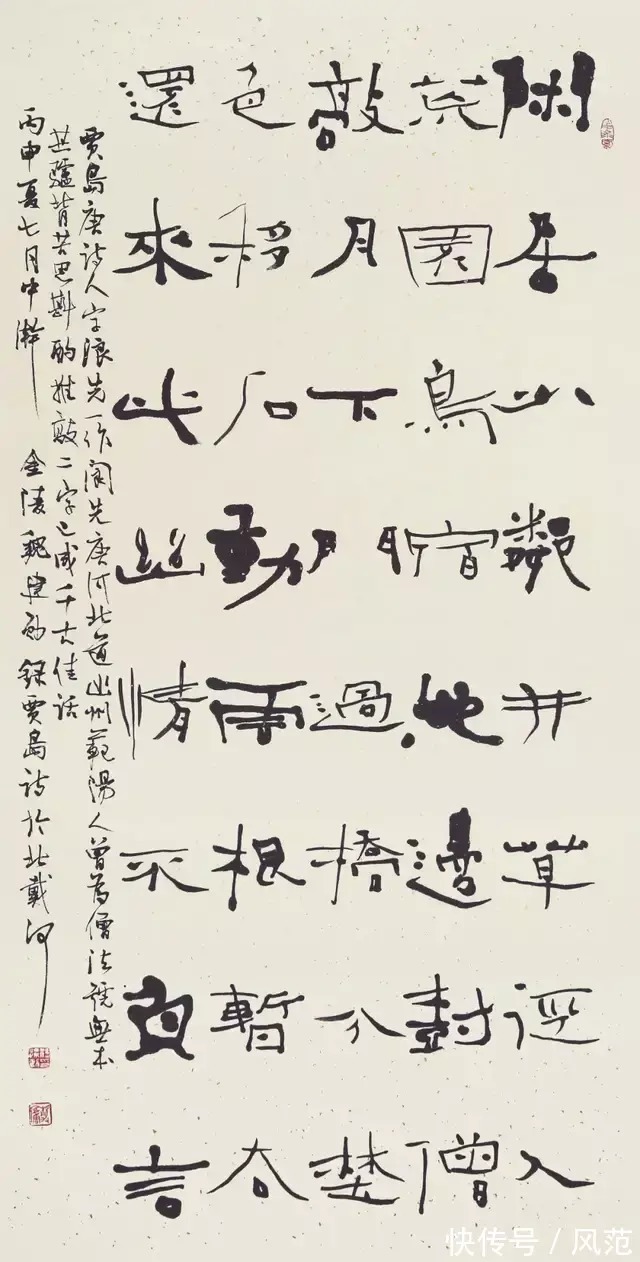 閑居少鄰井草逕入
荒園鳥宿池邊尌僧
敲月下門過橋分埜
色移石動雨根暫去
還來此幽情不負言
賈島唐詩人字浪先一作閬先唐河北道幽州範陽人曾為僧法號無本
其驢背苦思斟酌推敲二字已成千古佳話
丙申夏七月中澣 金陵魏建 錄賈島詩於北戴河
快传号 / 风范